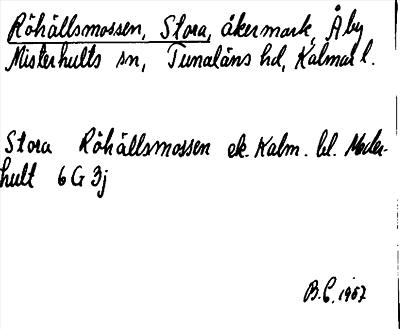 Röhällsmossen, Stora, åkermark, Åby
Misterhults sn, Tunaläns hd, Kalmar l.
Stora Röhällsmossen ek. Kalm. bl. Moder-
hult 6 G 3j
B.C. 1967